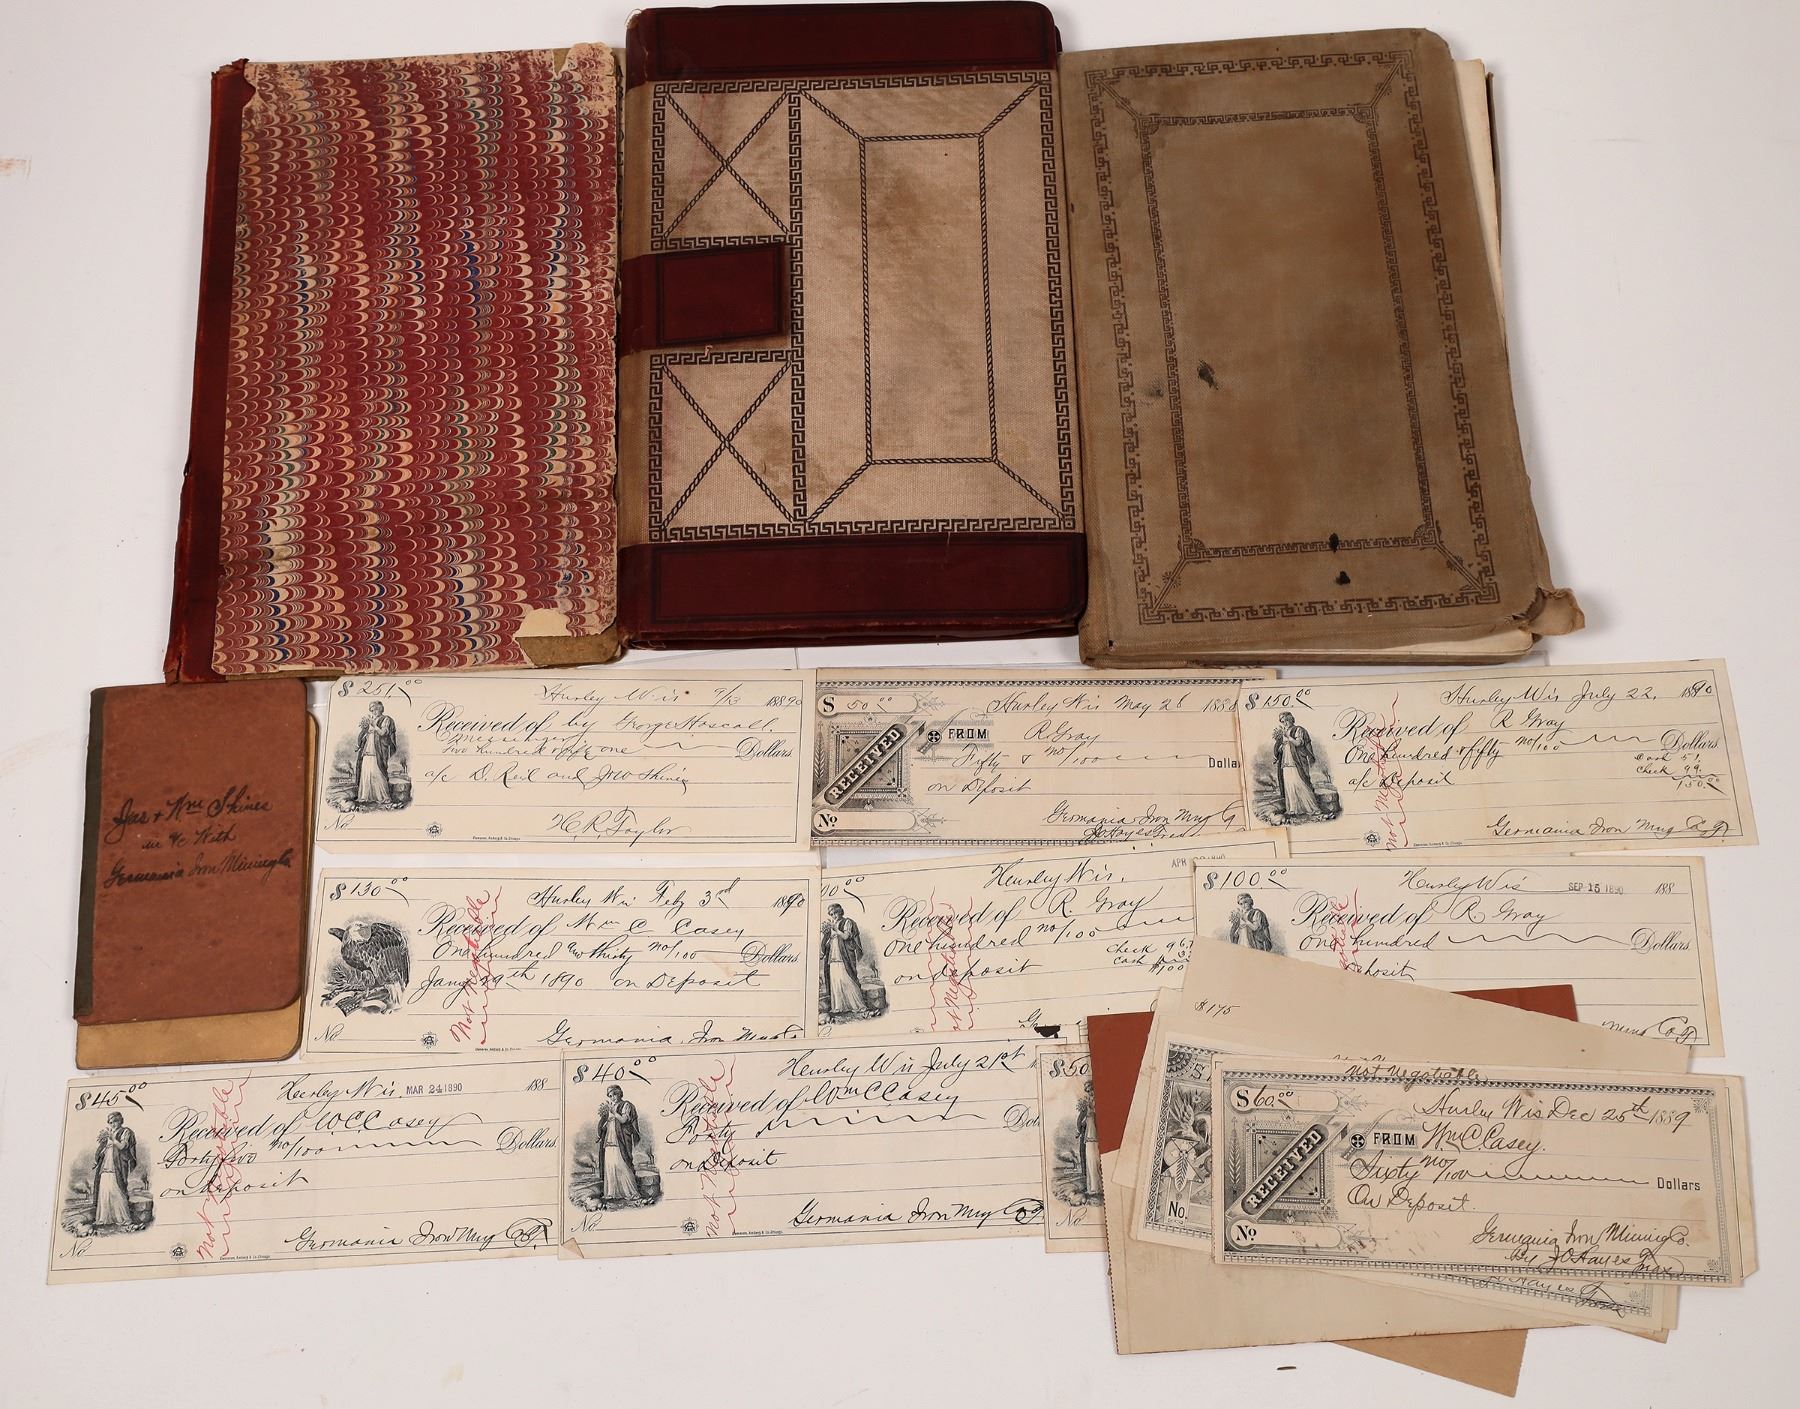 Jas + Wm Shines
in a/c With
Germania Iron Mining Co
$ 251.00 Hurley Wis 9/13 1889
Received of by George Hascall.
Messenger
two hundred & fifty one Dollars
a/c D. Reil and Jas Shines
H. R. Taylor
No.
$ 50.00 Hurley Wis May 26 188
RECEIVED FROM R. Gray
Fifty & no/100 Dollars
on Deposit
Germania Iron Mng Co
J O Hayes Treas
No
$ 150.00 Hurley Wis July 22, 1890
Received of R Gray
One hundred & fifty no/100 Dollars
Cash 51.
Check 99.
150.00
a/c Deposit
Not Negotiable
Germania Iron Mng Co
$ 130.00 Hurley Wis Feby 3rd 1890
Received of Wm C Casey
One hundred and thirty no/100 Dollars
Jany 29th 1890 on Deposit
Not Negotiable
No. Germania Iron Mng Co
00.00 Hurley Wis. APR 1890
Received of R. Gray
One hundred no/100
Check 96.
Cash
$100
on deposit
Not Negotiable
$ 100.00 Hurley Wis SEP 15 1890 188
Received of R Gray
One hundred Dollars
Deposit
Mng Co
$ 45.00 Hurley Wis. MAR 24 1890 188
Received of W C Casey
Forty five no/100 Dollars
on deposit
Not Negotiable
No. Germania Iron Mng Co
$ 40.00 Hurley Wis July 21st
Received of Wm C Casey
Forty
on Deposit
Not Negotiable
No. Germania Iron Mng Co
$ 50
$175
Not Negotiable
No.
$ 60.00 Hurley Wis Dec 25th 1889
RECEIVED FROM Wm C. Casey.
Sixty no/100 Dollars
On Deposit.
Germania Iron Mining Co.
No By J O Hayes Treas
J O Hayes
Treas